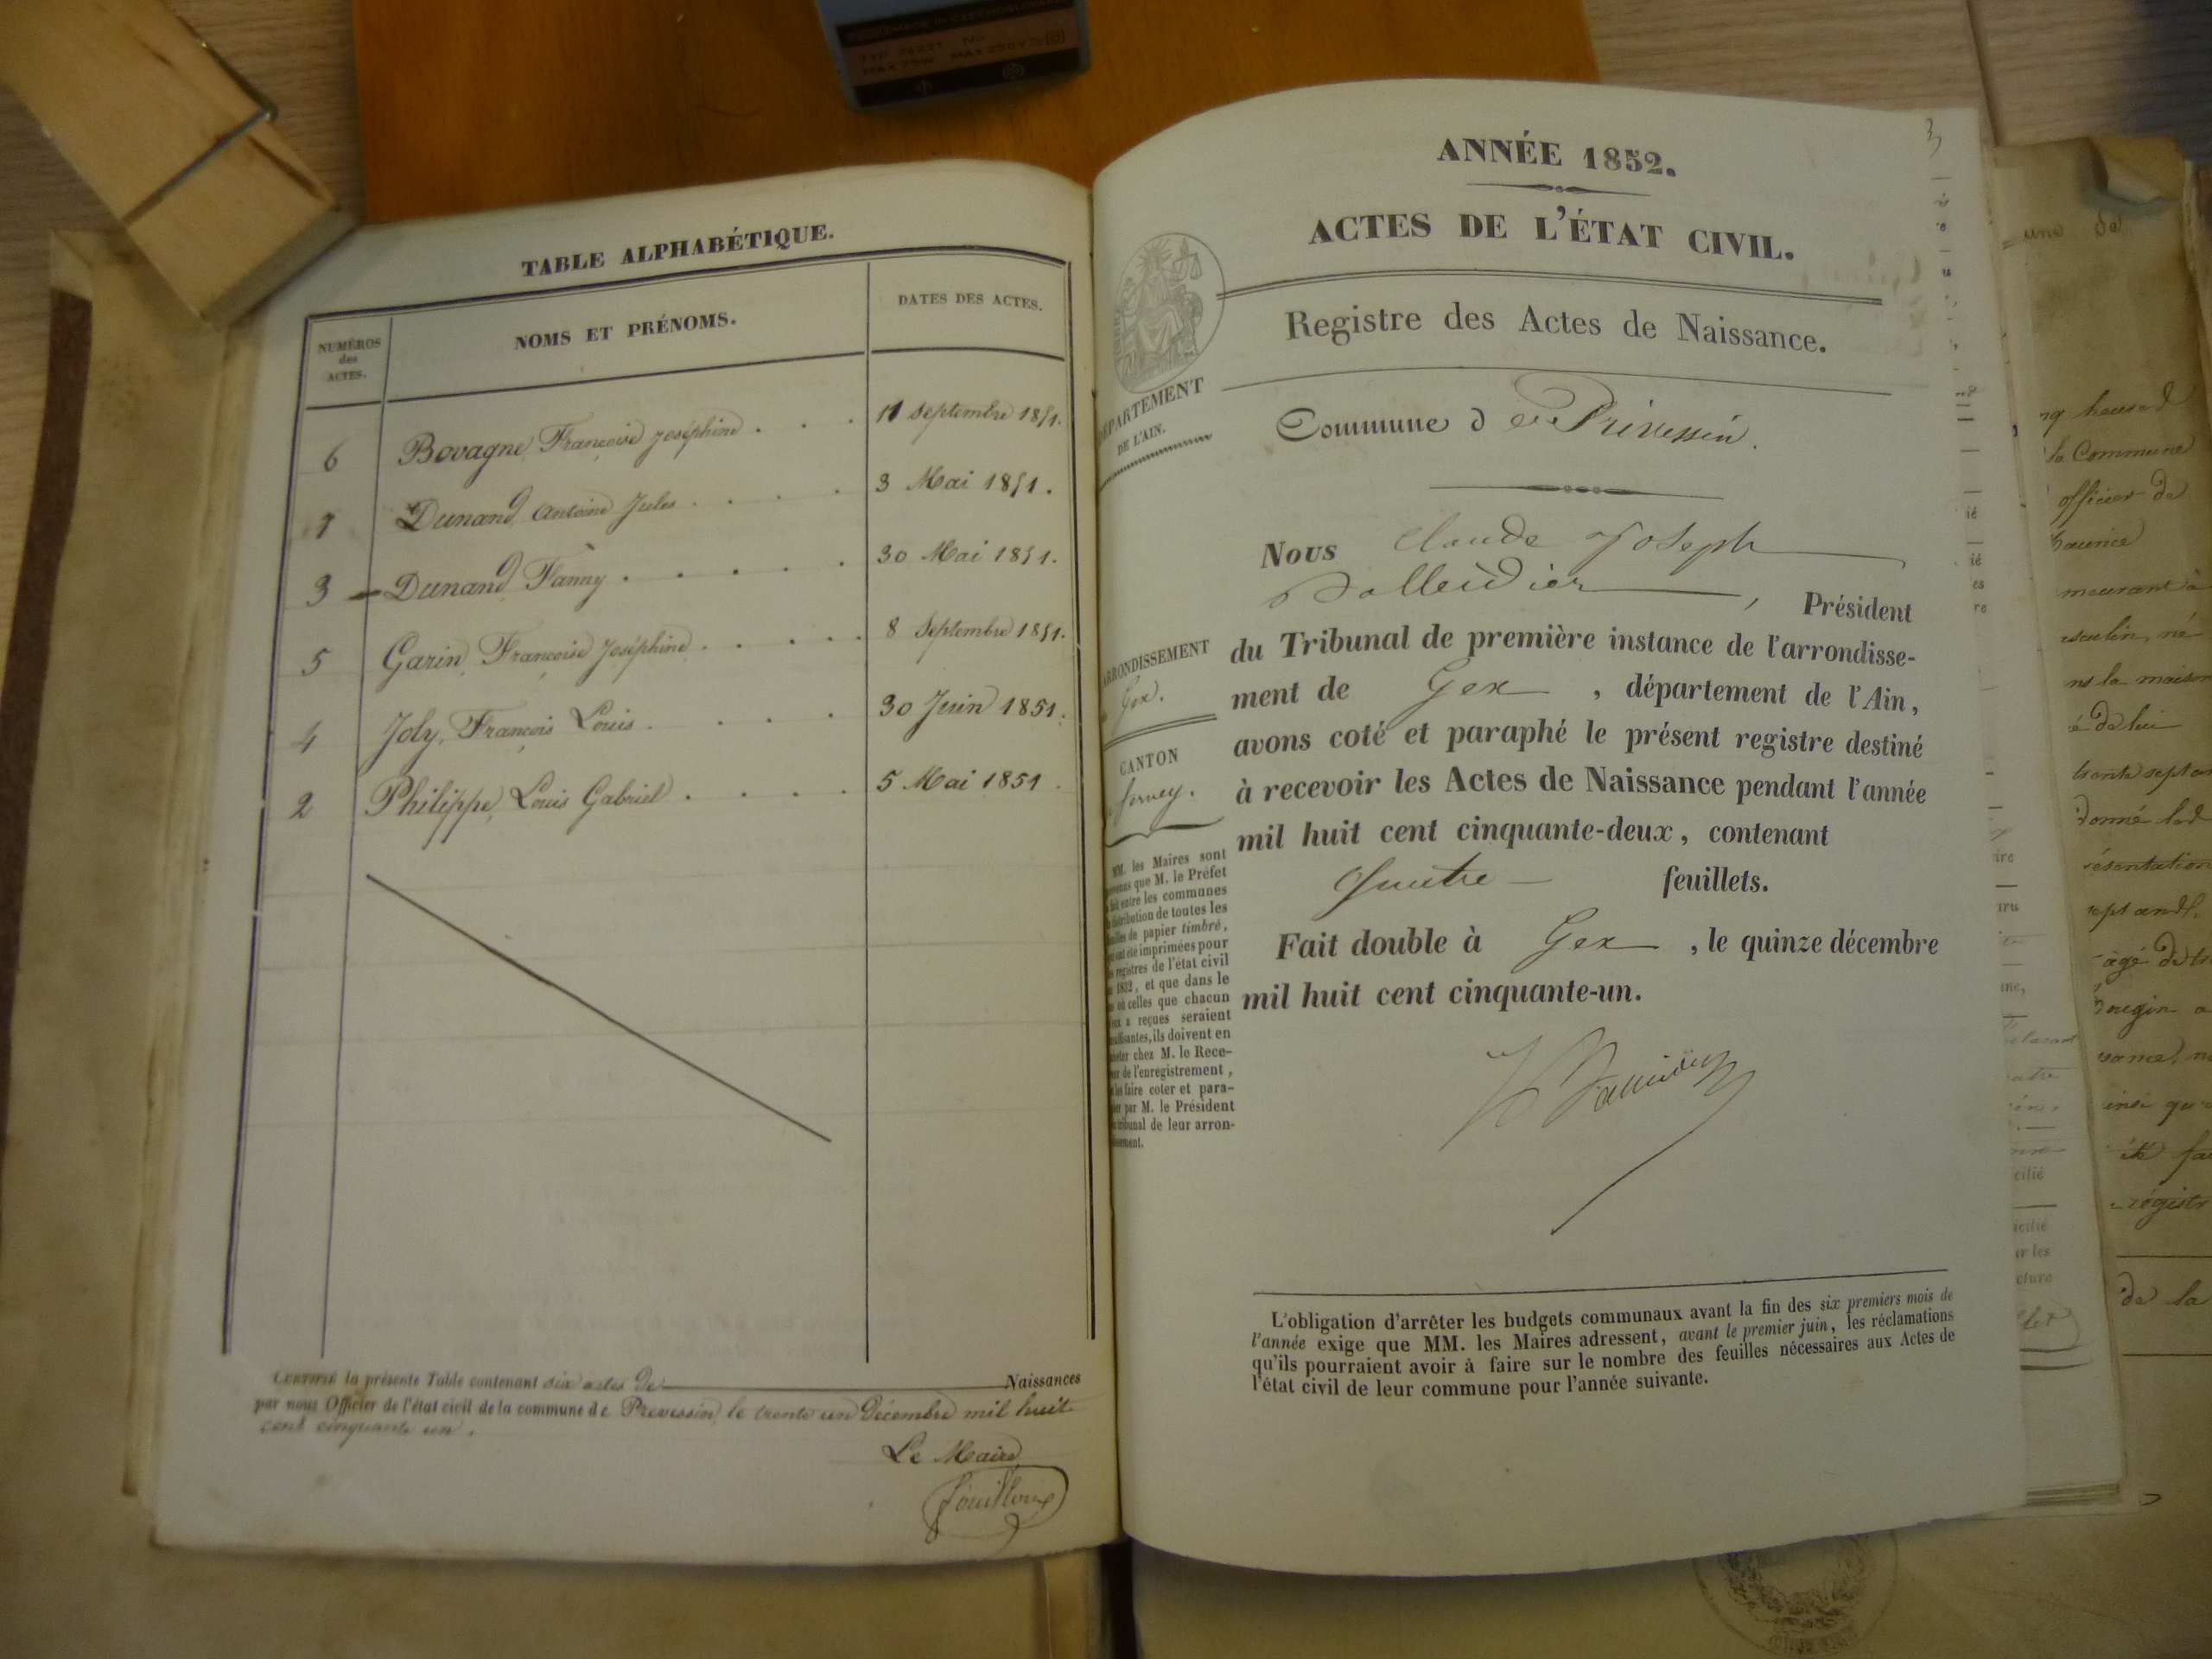 TABLE ALPHABÉTIQUE.
NUMÉROS
des
ACTES.
NOMS ET PRÉNOMS.
DATES DES ACTES.
6 Bovagne, Françoise Joséphine . . . 11 Septembre 1851.
1 Dunand, Antoine Jules . . . . 3 Mai 1851.
3 Dunand, Fanny . . . . . 30 Mai 1851.
5 Garin, Françoise Joséphine . . . . . 8 Septembre 1851.
4 Joly, François Louis . . . . 30 Juin 1851.
2 Philippe, Louis Gabriel . . . . 5 Mai 1851.
CERTIFIÉ la présente Table contenant six actes de Naissances
par nous Officier de l'état civil de la commune de Prevessin, le trente un Décembre mil huit
cent cinquante un.
Le Maire,
Fouilloux
3
ANNÉE 1852.
ACTES DE L'ÉTAT CIVIL.
Registre des Actes de Naissance.
DÉPARTEMENT
DE L'AIN.
Commune de Prévessin.
Nous Claude Joseph
, Président
du Tribunal de première instance de l'arrondisse-
ment de Gex , département de l'Ain,
avons coté et paraphé le présent registre destiné
à recevoir les Actes de Naissance pendant l'année
mil huit cent cinquante-deux, contenant
quatre feuillets.
Fait double à Gex , le quinze décembre
mil huit cent cinquante-un.
ARRONDISSEMENT
Gex.
CANTON
ferney.
MM. les Maires sont
que M. le Préfet
fait entre les communes
distribution de toutes les
de papier timbré,
ont été imprimées pour
registres de l'état civil
1852, et que dans le
où celles que chacun
a reçues seraient
, ils doivent en
chez M. le Rece-
de l'enregistrement,
faire coter et para-
par M. le Président
tribunal de leur arron-
L'obligation d'arrêter les budgets communaux avant la fin des six premiers mois de
l'année exige que MM. les Maires adressent, avant le premier juin, les réclamations
qu'ils pourraient avoir à faire sur le nombre des feuilles nécessaires aux Actes de
l'état civil de leur commune pour l'année suivante.
la Commune
officier de
mourant à
la maison
de lui
trente sept
donné
de la